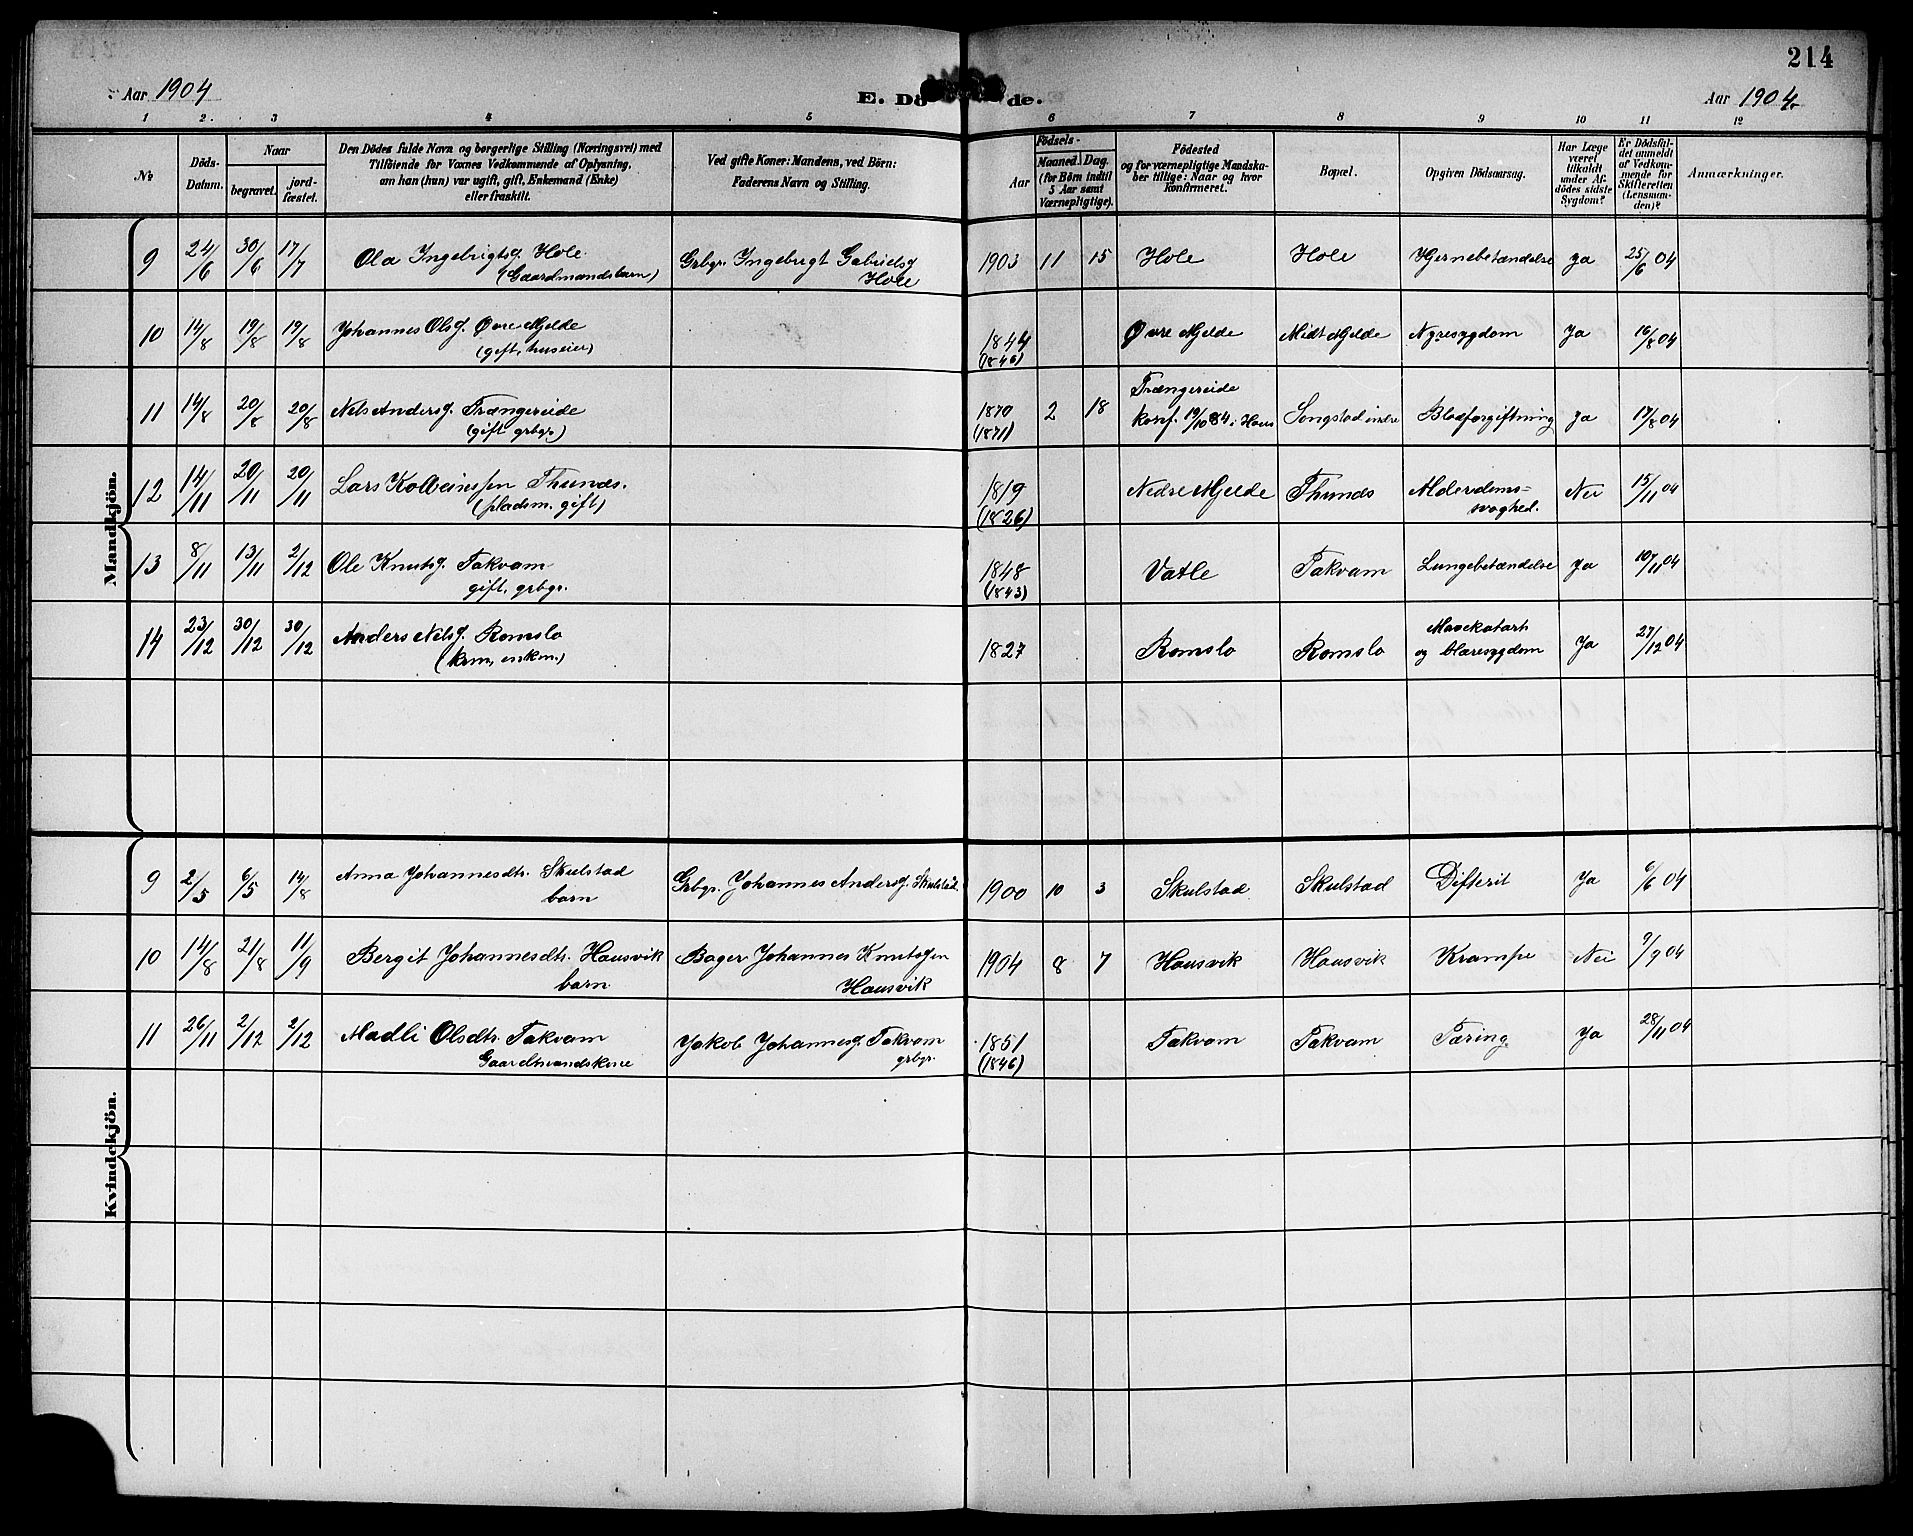 214
Aar 1904
E. Dö de.
Aar 1904
1 2. 3 4 5 6 7 8 9 10 11 12
No
Döds-Datum.
Naar
begravet.
jord-fæstet.
Den Dödes fulde Navn og borgerlige Stilling (Næringsvei) med
Tilföiende for Voxnes Vedkommende af Oplysning,
om han (hun) var ugift, gift, Enkemand (Enke)
eller fraskilt.
Ved gifte Koner: Mandens, ved Börn:
Faderens Navn og Stilling.
Födsels-
Aar
Maaned. Dag.
(for Börn indtil
5 Aar samt
Værnepligtige).
Födested
og for værnepligtige Mandska-
ber tillige: Naar og hvor
Konfirmeret.
Bopæl.
Opgiven Dödsaarsag.
Har Læge
været
tilkaldt
under Af-
dödes sidste
Sygdom?
Er Dödsfal-
det anmeldt
af Vedkom-
mende for
Skifteretten
(Lensman-
den)?
Anmærkninger.
Mandkjön.
9 24/6 30/6 17/7 Ola Ingebrigtsg. Hole Grbgr. Ingebrigt Gabrielsg 1903 11 15 Hole Hole Hjernebetændelse ja 25/6 04
(Gaardmandsbarn) Hole
10 14/8 19/8 19/8 Johannes Olsg. Øvre Mjelde 1844 Øvre Mjelde Midt Mjelde Nyresygdom Ja 16/8 04
(gift, huseier) (1846)
11 14/8 20/8 20/8 Nels Andersg. Trængereide 1870 2 18 Trængereide Songstad indre Blodforgiftning ja 17/8 04
(gift grbgr.) (1871) konf. 19/10 84 i Hous
12 14/11 20/11 20/11 Lars Kolbeinssen Thunds. 1819 Nedre Mjelde Thunds Alderdoms- Nei 15/11 04
(pladsm. gift) (1826) svaghed.
13 8/11 13/11 2/12 Ole Knutsg. Takvam 1848 Vatle Takvam Lungebetændelse Ja 10/11 04
gift, grbgr. (1843)
14 23/12 30/12 30/12 Anders Nelsg. Romslo 1827 Romslo Romslo Mavekatarh Ja 27/12 04
(krm, enkm.) og blæresygdom
Kvindekjön.
9 2/5 6/5 14/8 Anna Johannesdtr. Skulstad Grbgr. Johannes Andersg. Skulstad 1900 10 3 Skulstad Skulstad Difterit Ja 6/6 04
barn
10 14/8 21/8 11/9 Bergit Johannesdtr. Hausvik Bager Johannes Knutssen 1904 8 7 Hausvik Hausvik Krampe Nei 9/9 04
barn Hausvik
11 26/11 2/12 2/12 Madli Olsdtr. Takvam Jakob Johannesg. Takvam 1851 Takvam Takvam Tæring Ja 28/11 04
Gaardmandskone grbgr. (1846)